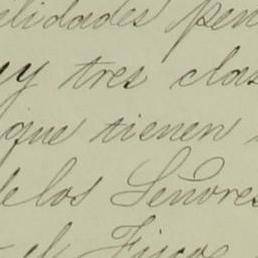 elidades pen
y tres clas
que tienen
de los Señores
el Fiscos